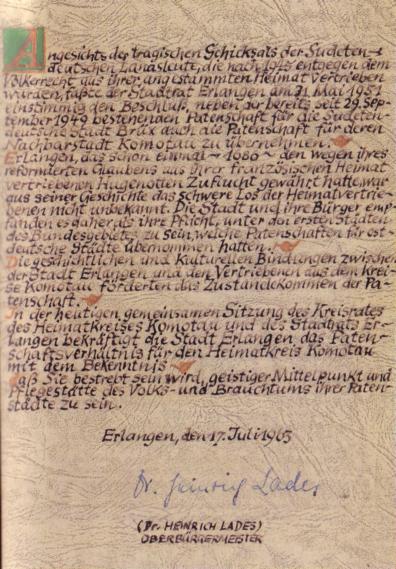 Angesichts der tragischen Schicksals der Sudeten-
deutschen Landsleute, die nach 1945 entgegen dem
Völkerrecht aus ihrer angestammten Heimat vertrieben
wurden, faßte der Stadtrat Erlangen am 31. Mai 1951
einstimmig den Beschluß, neben der bereits seit 29. Sep-
tember 1949 bestehenden Patenschaft für die Sudeten-
deutsche Stadt Brüx auch die Patenschaft für deren
Nachbarstadt Komotau zu übernehmen.
Erlangen, das schon einmal ~ 1686 ~ den wegen ihres
reformierten Glaubens aus ihrer französischen Heimat
vertriebenen Hugenotten Zuflucht gewährt hatte, war
aus seiner Geschichte das schwere Los der Heimatvertrie-
benen nicht unbekannt. Die Stadt und ihre Bürger emp-
fanden es daher als ihre Pflicht, unter den ersten Städten
des Bundesgebietes zu sein, welche Patenschaften für ost-
deutsche Städte übernommen hatten.
Die geschichtlichen und kulturellen Bindungen zwischen
der Stadt Erlangen und den Vertriebenen aus dem Krei-
se Komotau förderten das Zustandekommen der Pa-
tenschaft.
In der heutigen gemeinsamen Sitzung des Kreisrates
des Heimatkreises Komotau und des Stadtrats Er-
langen bekräftigt die Stadt Erlangen das Paten-
schaftsverhältnis für den Heimatkreis Komotau
mit dem Bekenntnis
daß Sie bestrebt sein wird, geistiger Mittelpunkt und
Pflegestätte des Volks- und Brauchtums ihrer Paten-
städte zu sein.
Erlangen, den 17. Juli 1965
Dr. Heinrich Lades
(Dr. HEINRICH LADES)
OBERBÜRGERMEISTER